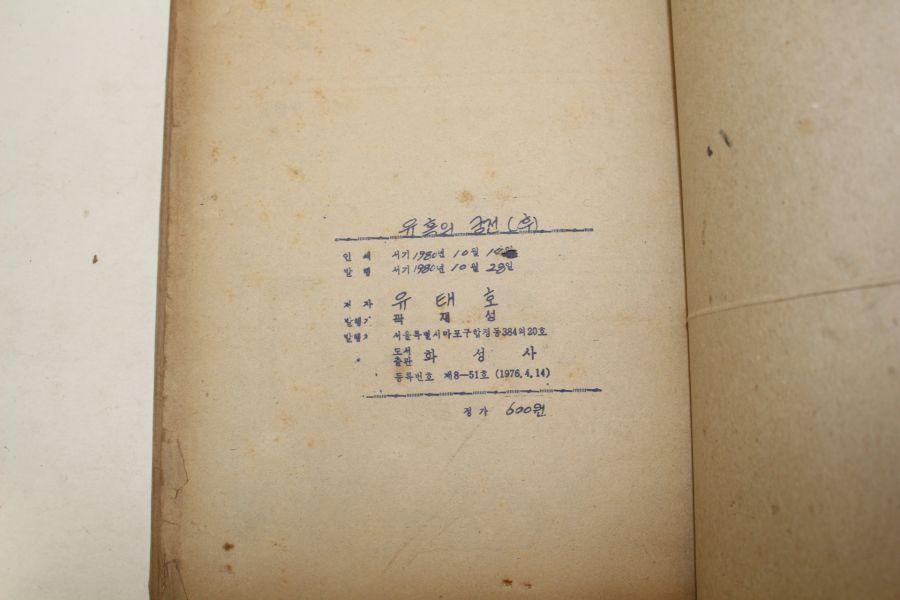 유혹의 금전 (후)
인쇄 서기 1980년 10월 10일
발행 서기 1980년 10월 28일
저자 유태호
발행 곽재성
발행 서울특별시마포구합정동384의20호
도서출판 화성사
등록번호 제8—51호 (1976.4.14)
정가 600원